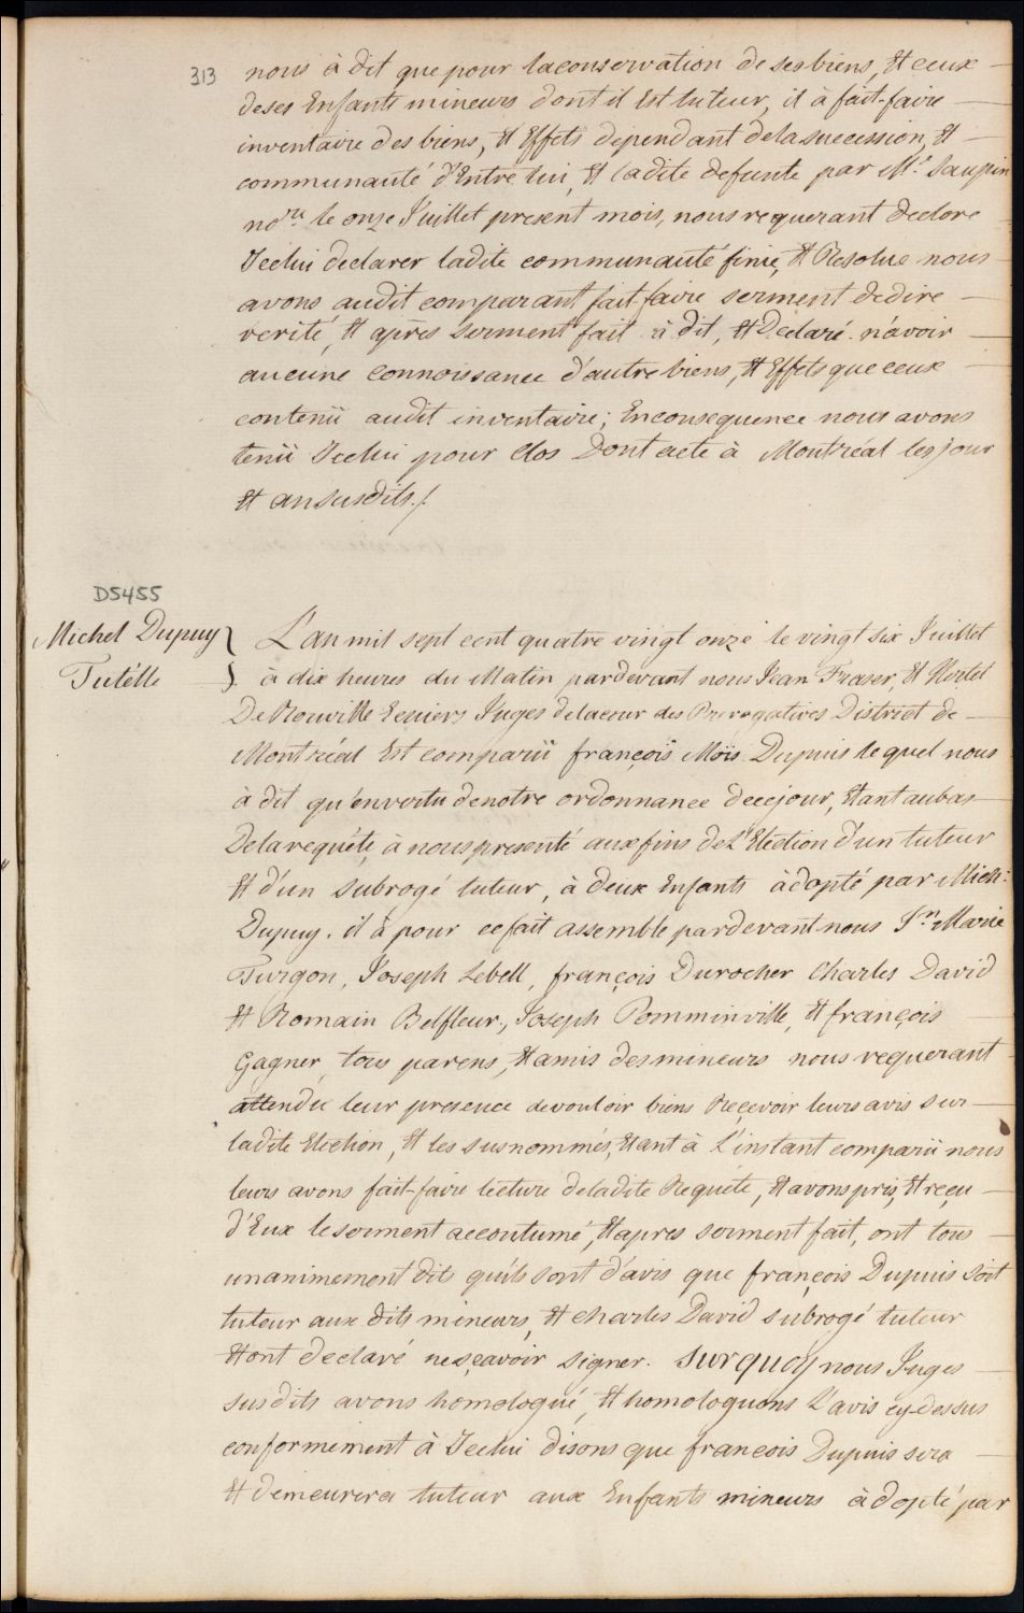 313
nous à dit que pour laconservation de ses biens, Et ceux
deses Enfants mineurs dont il Est tuteur, il à fait-faire
inventaire des biens, Et Effets dependant dela succession, Et
communauté d'Entre lui, Et ladite defunte par Mr. Saupin
nore. le onze Juillet present mois, nous requerant declore
Icelui declarer ladite communauté finie, Et Resolue nous
avons audit comparant fait faire serment dedire
verité, Et après serment fait à dit, Et Declaré n'avoir
aucune connoissance d'autre biens, Et Effets que ceux
contenü audit inventaire; Enconsequence nous avons
tenü Icelui pour Clos Dont acte à Montréal les jour
Et an susdits./.
D5455
Michel Dupuy
Tutélle
L'an mil sept cent quatre vingt onze le vingt six Juillet
à dix heures du Matin pardevant nous Jean Fraser, Et Hertel
De Rouville Ecuiers Juges delacour des Prerogatives District de
Montréal Est comparü françois Moïs Dupuis lequel nous
à dit qu'envertu denotre ordonnance decejour, Etant aubas
Delarequéte, à nous presenté auxfins de L'Election d'un tuteur
Et d'un subrogé tuteur, à deux Enfants àdopté par Mich:
Dupuy. il à pour cefait assemble pardevant-nous Jn. Marie
Turgon, Joseph Lebell, françois Durocher Charles David
Et Romain Belfleur, Joseph Pomminville, Et françois
Gagner, tous parens, Et amis des mineurs nous requerant
attendu leur presence devouloir biens Reçevoir leurs avis sur
ladite Election, Et les susnommés, Etant à L'instant comparü nous
leurs avons fait-faire lecture deladite Requéte, Et avons pris, Et reçu
d'Eux le serment accoutumé, Et apres serment fait, ont tous
unanimement dits qu'ils sont d'avis que françois Dupuis soit
tuteur aux dits mineurs, Et charles David subrogé tuteur
Et ont declaré nesçavoir signer. Surquoy nous Juges
susdits avons homologué, Et homologuons L'avis cy-dessus
conformement à Icelui disons que francois Dupuis sera
Et demeurera tuteur aux Enfants mineurs àdopté par